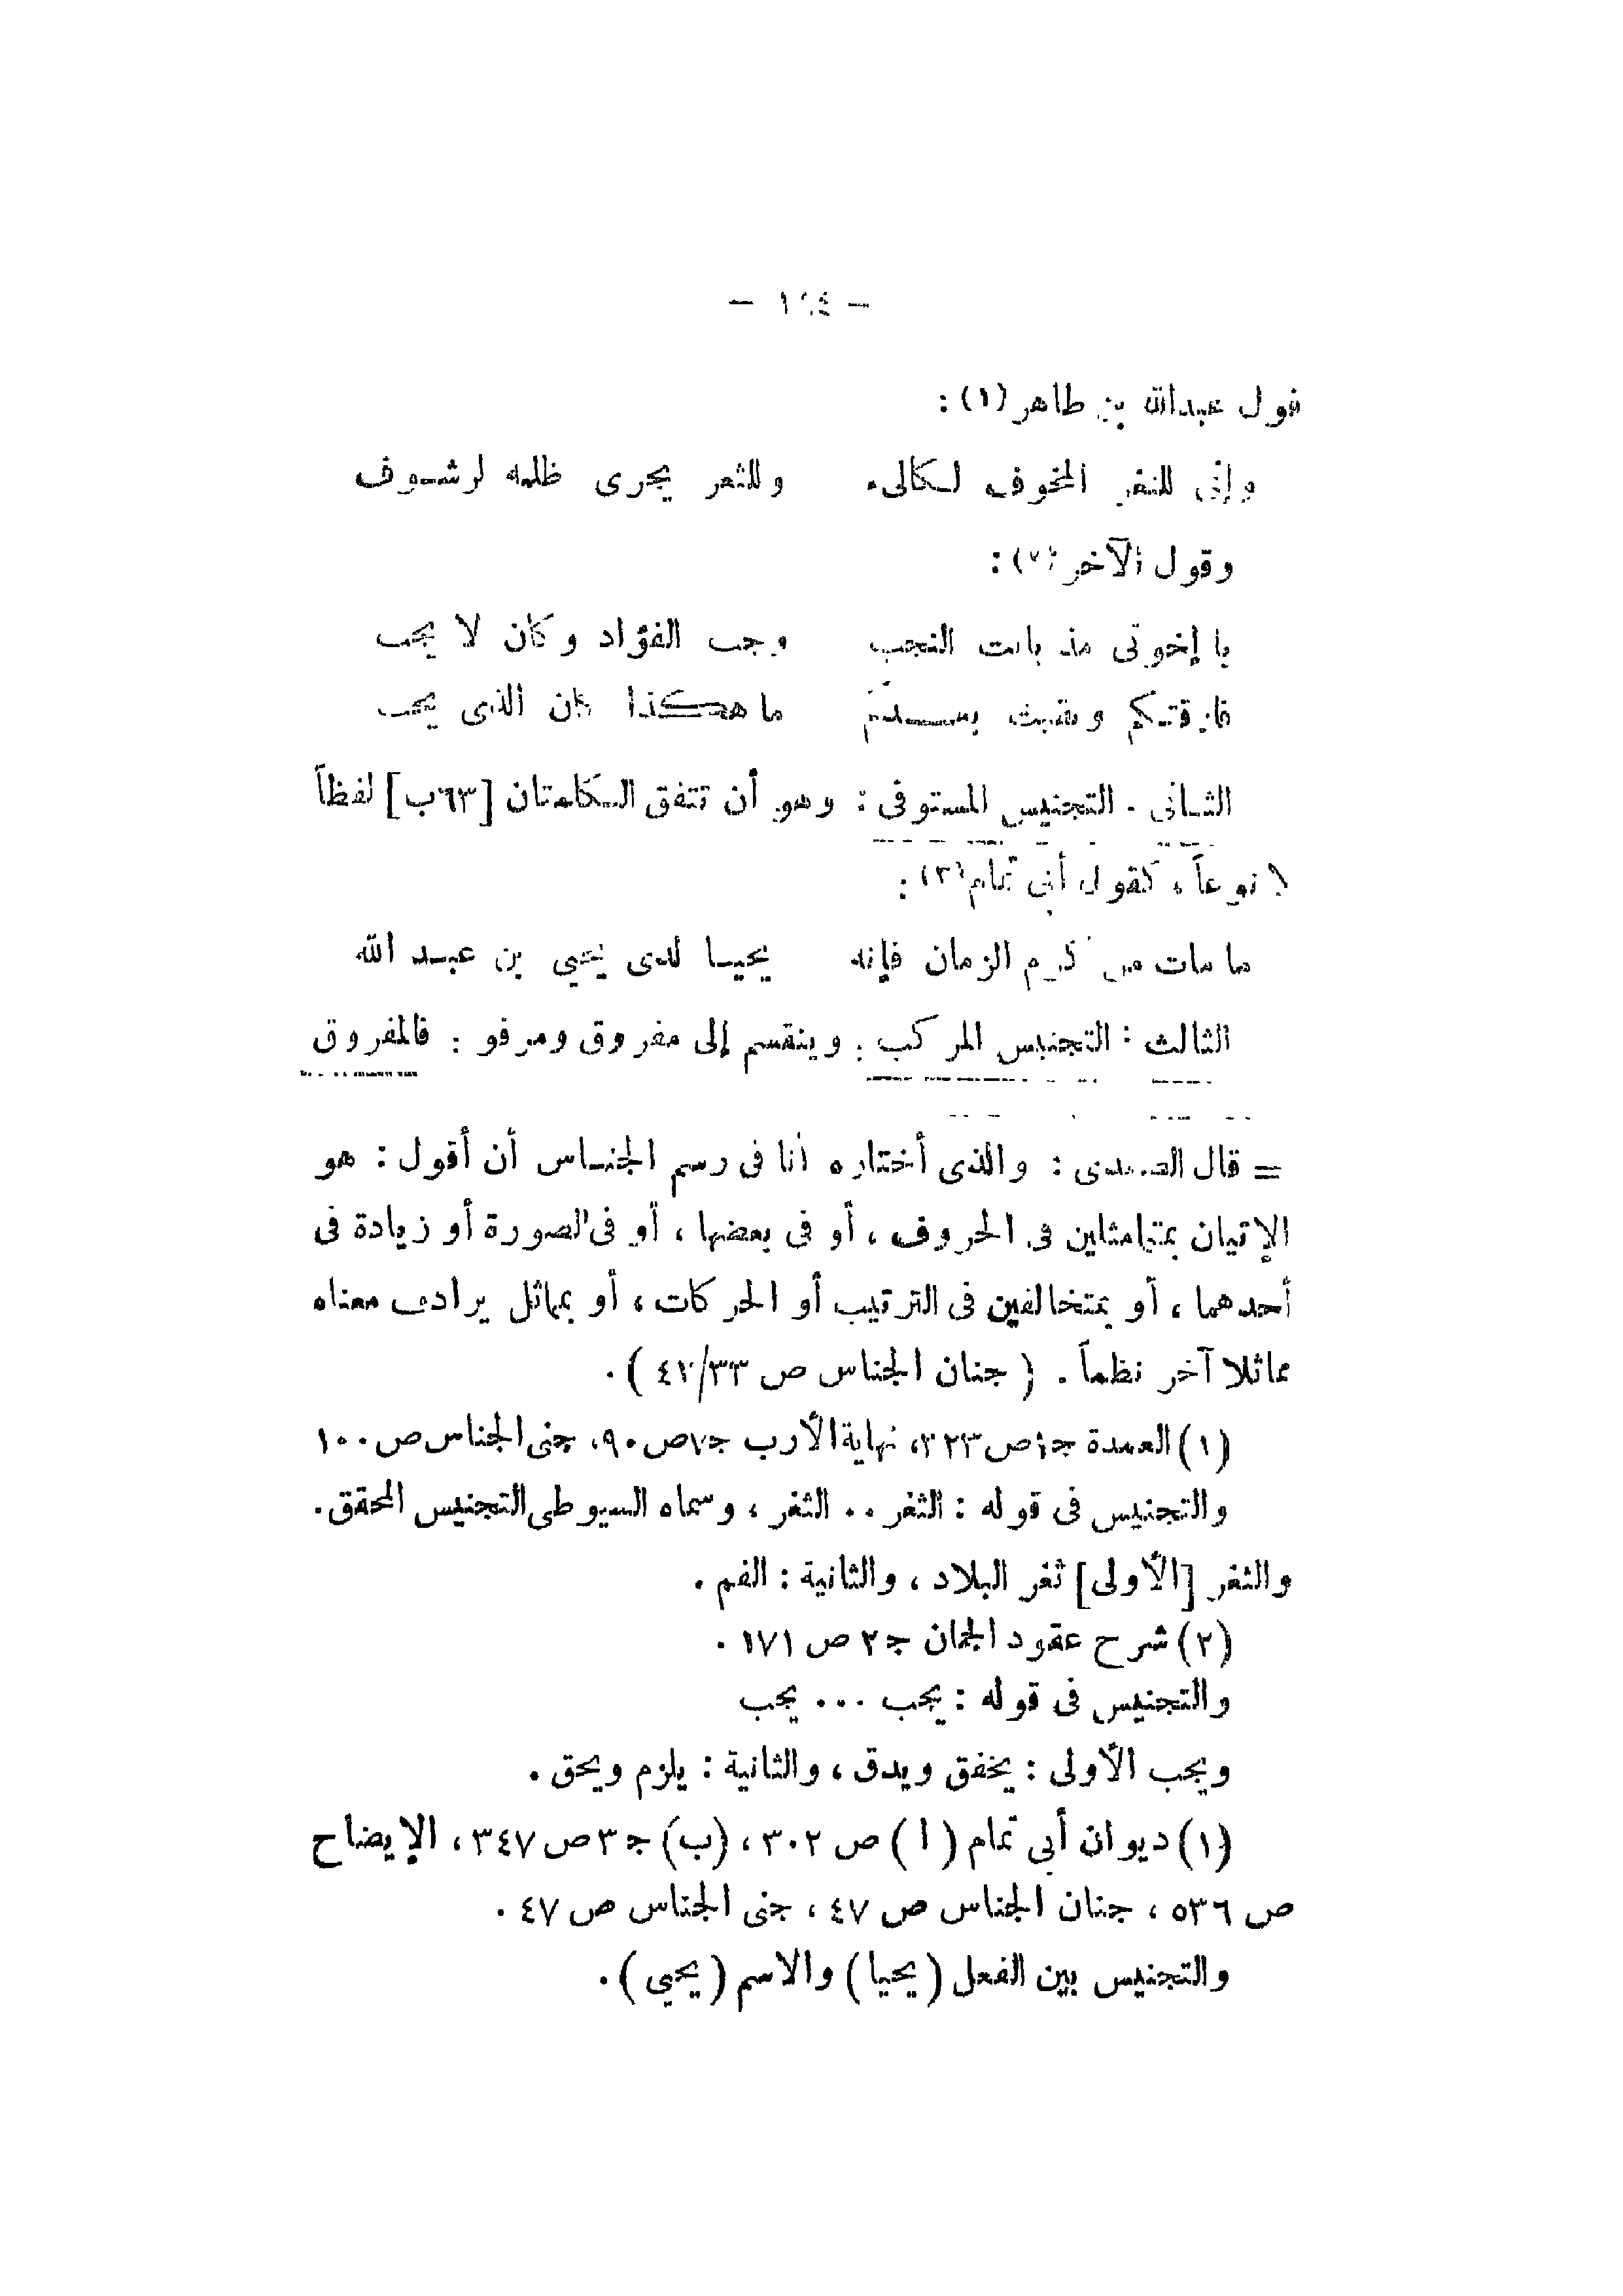 قول عبدالله بن طاهر (١) :
وإنى للثغر المخوف لـكالىء وللثغر يجرى ظلمه لرشـوف
وقول الآخر (٢) :
يا إخوتى مذ بانت النجب وجب الفؤاد وكان لا يجب
فارقتـكم وبقيت بعـــدكم ما هـكـذا كان الذى يجب
الثـانى - التجنيس المستوفى : وهو أن تتفق الـكلمتان [٦٣ب] لفظاً
لا نوعاً ، كقول أبى تمام (٣) :
ما مات من كرم الزمان فإنه يحيـا لدى يحيي بن عبـد الله
الثالث : التجنيس المركب : وينقسم إلى مفروق ومرفو : فالمفروق
= قال الصفدى : والذى أختاره أنا فى رسم الجنـاس أن أقول : هو
الإتيان بمتماثلين فى الحروف ، أو فى بعضها ، أو فى الصورة أو زيادة فى
أحدهما ، أو بمتخالفين فى الترتيب أو الحركات ، أو بمماثل يرادف معناه
مماثلا آخر نظماً . ( جنان الجناس ص ٣٣/٤٢ ) .
(١) العمدة جـ١ص ٣٢٣، نهاية الأرب جـ٧ص ٩٠، جنى الجناس ص ١٠٠
والتجنيس فى قوله : الثغر .. الثغر ، وسماه السيوطى التجنيس المحقق .
والثغر [الأولى] ثغر البلاد ، والثانية : الفم .
(٢) شرح عقود الجمان جـ ٢ ص ١٧١ .
والتجنيس فى قوله : يجب ... يجب
ويجب الأولى : يخفق ويدق ، والثانية : يلزم ويحق .
(١) ديوان أبى تمام ( ا ) ص ٣٠٢ ، (ب) جـ ٣ ص ٣٤٧ ، الإيضاح
ص ٥٣٦ ، جنان الجناس ص ٤٧ ، جنى الجناس ص ٤٧ .
والتجنيس بين الفعل ( يحيا ) والاسم ( يحيي ) .